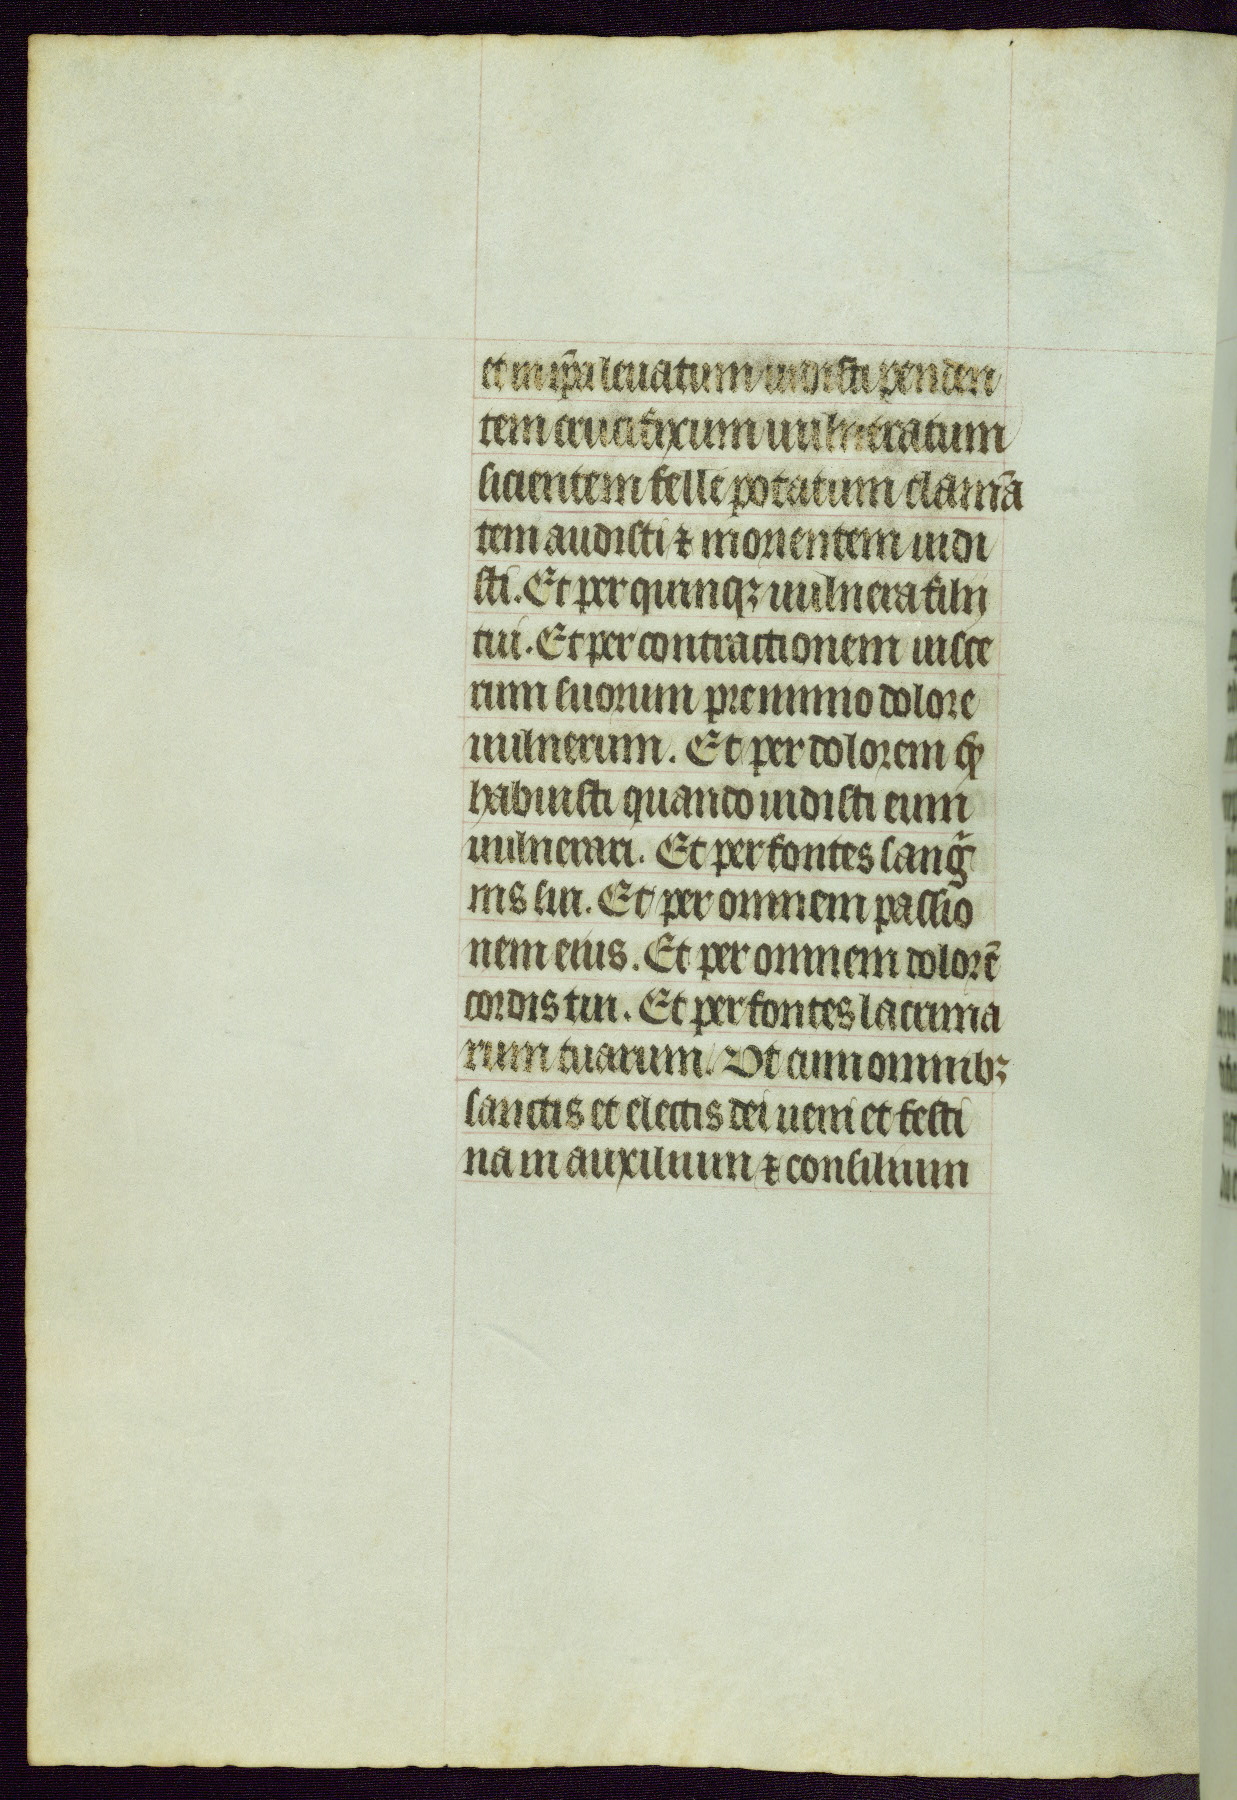 et in ip̄a leuatum uidisti penden
tem crucifixum uulneratum
sicientem felle potatum clamā
tem audisti ⁊ morientem uidi
sti. Et per quinqꝫ uulnera filij
tui. Et per contractionem uisce
rum suorum pre nimio dolore
uulnerum. Et per dolorem quē
habuisti quando uidisti eum
uulnerari. Et per fontes sang̃
nis sui. Et per omnem passio
nem eius. Et per omnem dolorē
cordis tui. Et per fontes lacrima
rum tuarum. Vt cum omnibꝫ
sanctis et electis dei ueni et festi
na in auxilium ⁊ consilium